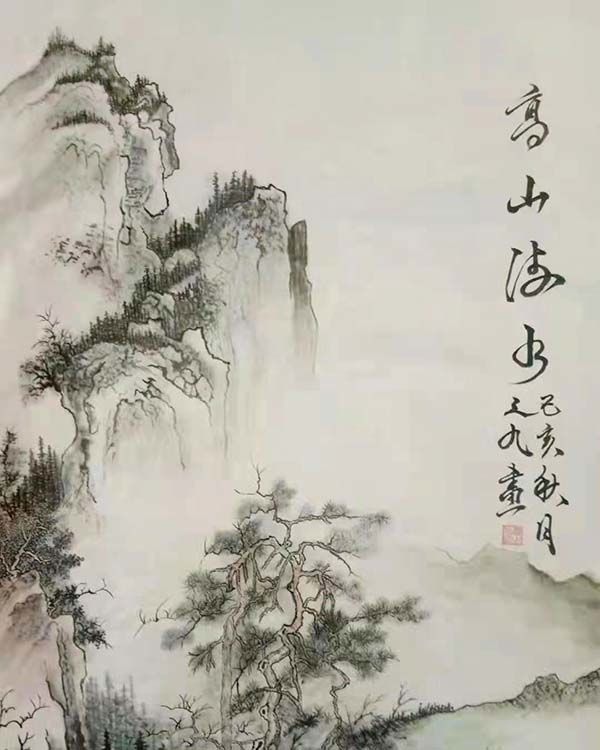 高山流水
己亥秋月
九畫